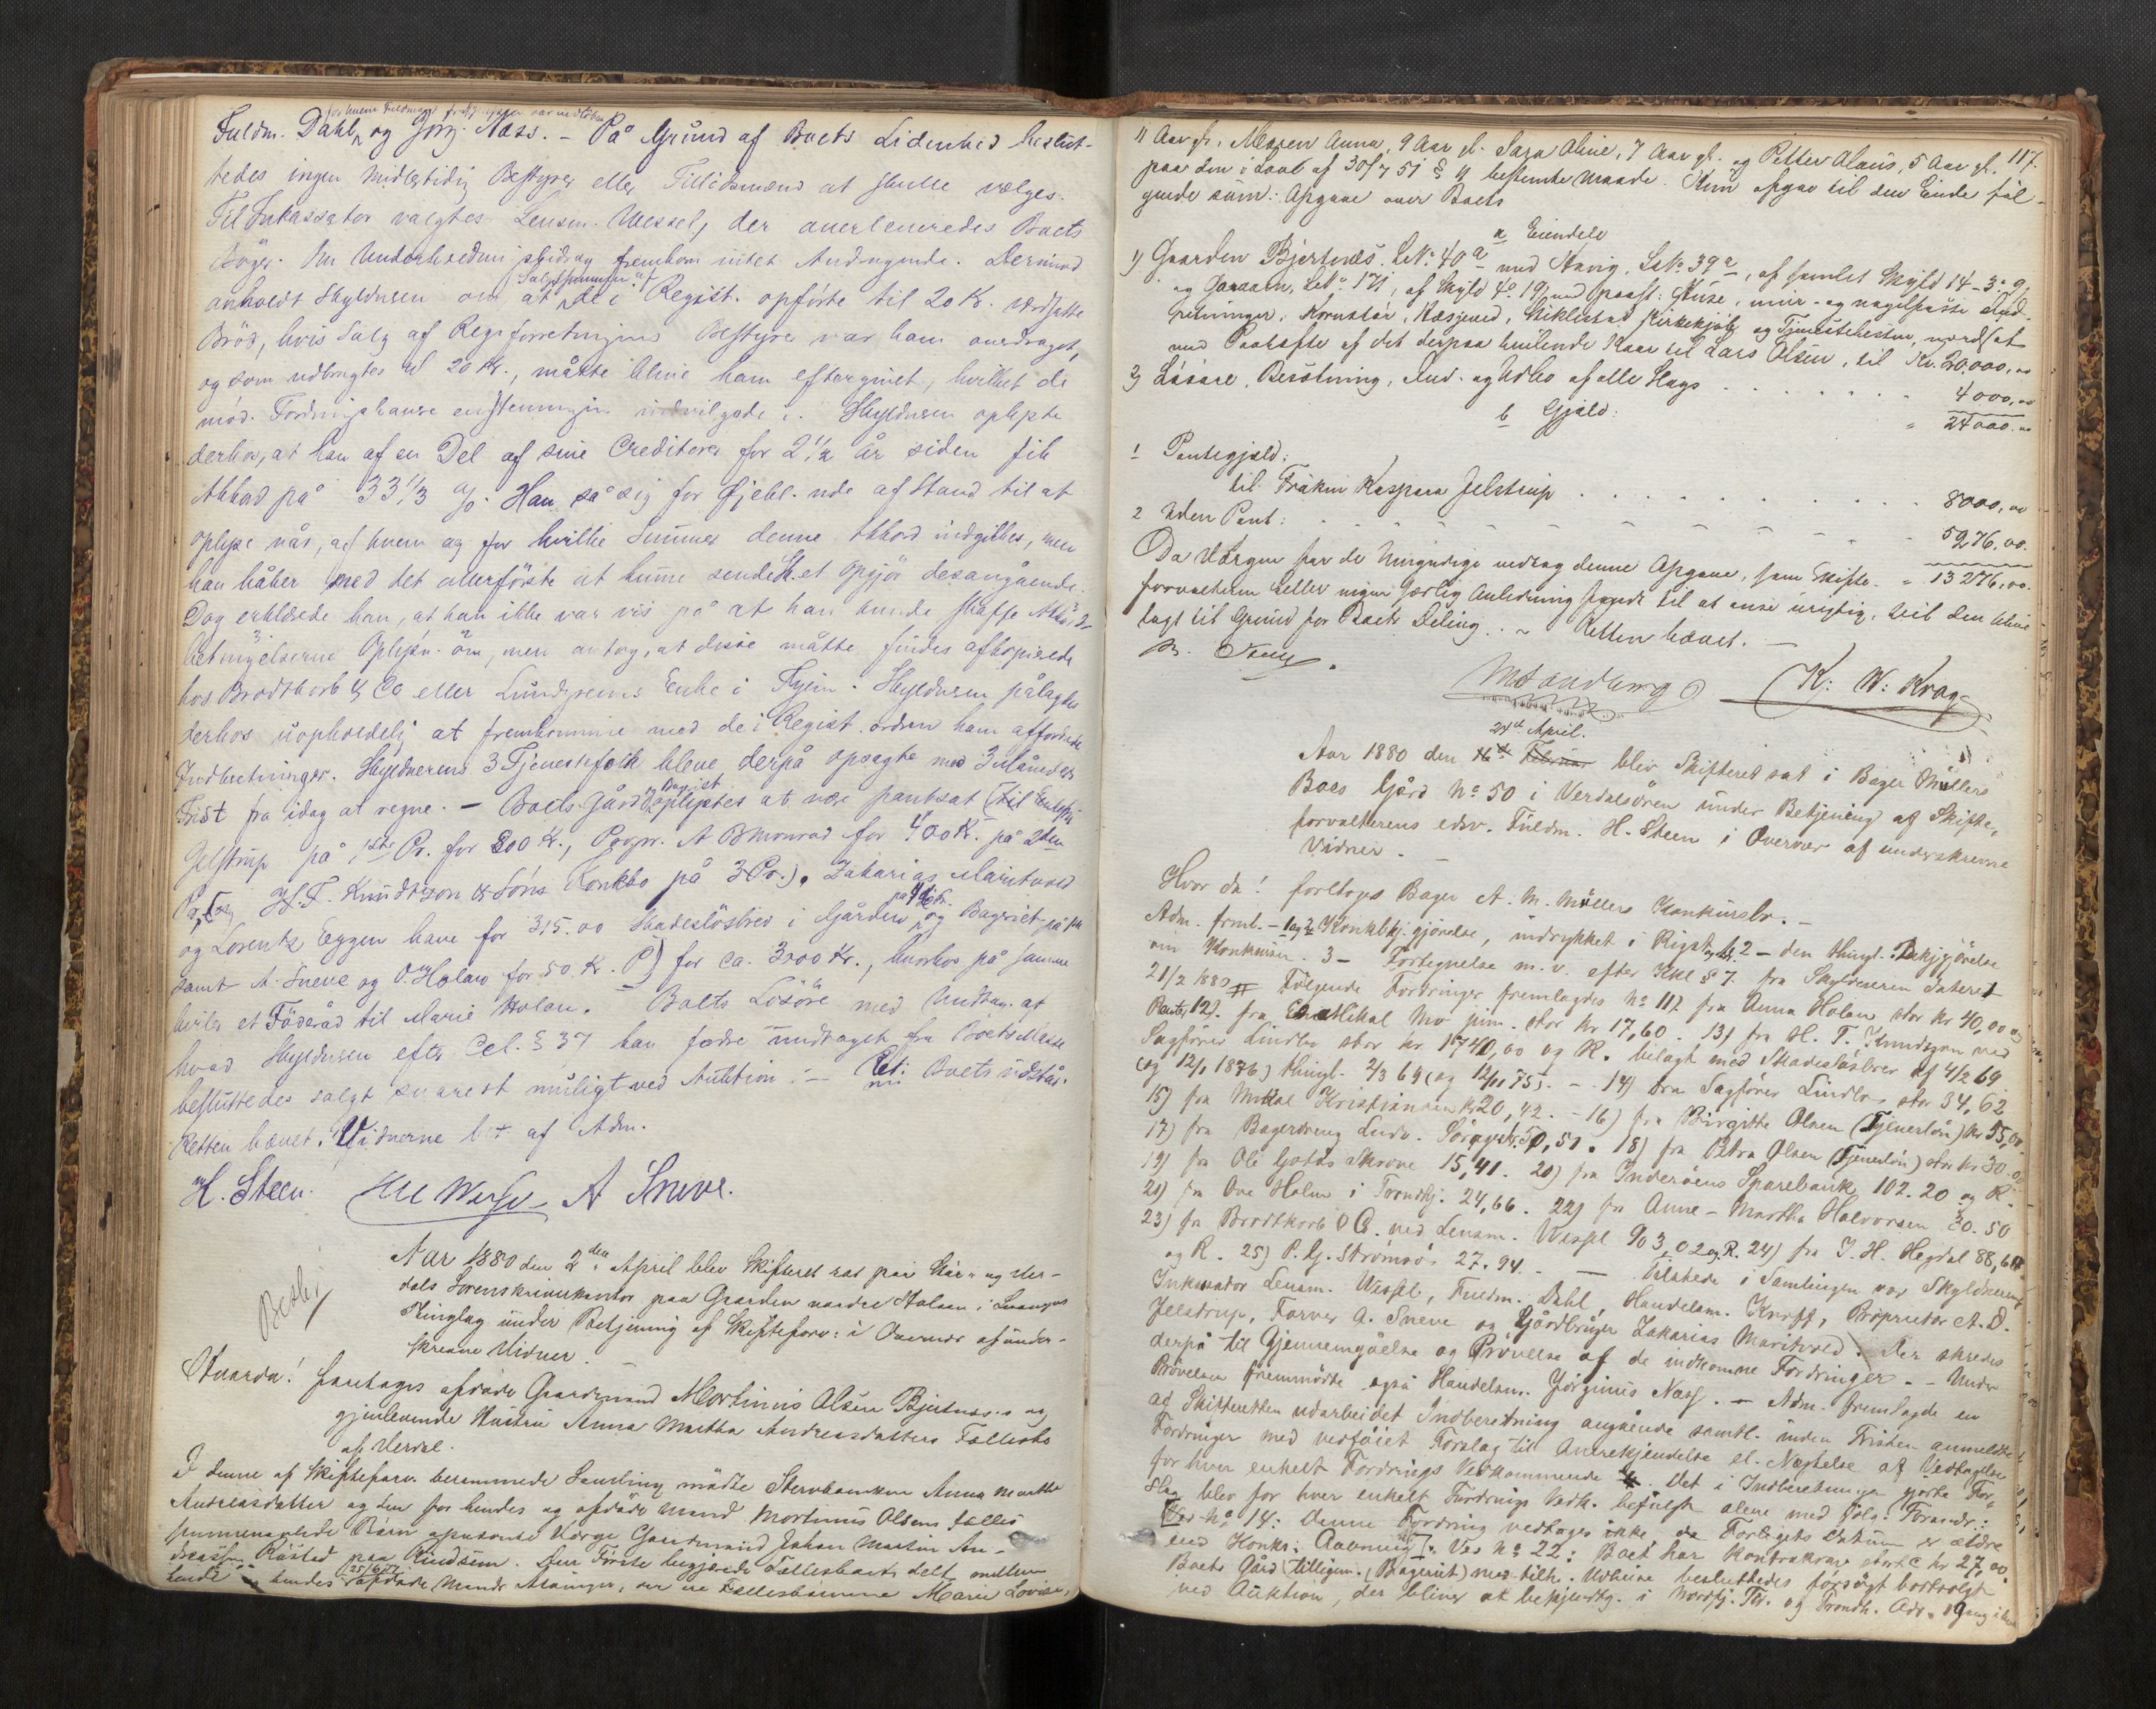 Fuldm. Dahl og Jörg. Næss. – På Grund af Boets Lidenhed beslut-
tedes ingen midlertidig Bestyrer eller Tillidsmænd at skulle vælges.
Til Inkassator valgtes Lensm. Wessel, der overleveredes Boets
Bøger. Om Underholdningsbidrag fremkom intet Andragende. Dernæst
anholdt Skyldneren om at de i Regist. opförte til 20 Kr. værdsatte
Bröd, hvis Salg af Reg.forretningens Bestyrer var ham overdraget,
og som udbragtes til 20 Kr., måtte blive ham eftergivet, hvilket de
mød. Fordringshavere enstemmigen indvilgede i. Skyldneren oplyste
derhos, at han af en Del af sine Creditorer for 2 1/2 år siden fik
Akkord på 33 1/3 %. Han så sig for Øjebl. ude af Stand til at
oplyse når, af hvem og for hvilke Summer denne Akkord indgikkes, men
han håber med det allerförste at kunne sende Sk. et Opgjör desangående.
Dog erklærede han, at han ikke var vis på at han kunde skaffe
Oplysn. om, men antog, at disse måtte findes afkopierede
hos Brodtkorb & Co eller Lundgreens Enke i Thjem. Skyldneren pålagdes
derhos uopholdelig at fremkomme med de i Regist. ordren ham affordrede
Indberetninger. Skyldnerens 3 Tjenestefolk bleve derpå opsagte med 3 Måneders
Frist fra idag at regne. – Boets Gård oplystes at være pantsat (til
Jelstrup på 1ste Pr. for 800 Kr., Propr. A Monrad for 400 Kr. på 2den
Pr., H. F. Knudtzon & Söns Konkbo på 3 Pr.). Zakarias Maritvold
og Lorentz Eggen have for 315.00 Skadeslösbrev i Gården og Bageriet
samt A. Sneve og O. Holan for 50 Kr. for ca. 3000 Kr., hvorhos på samme
hviler et Föderåd til Marie Holan. – Boets Lösöre med Undtag. af
hvad Skyldneren efter Cel. § 37 kan fordre undtaget fra Boets Masse
besluttedes solgt snarest muligt ved Auktion. –
Retten hævet. Vidnerne bet. af Adm.
H. Steen. A Sneve.
Aar 1880 den 2den April blev Skifteret sat paa Stör- og Ver-
dals Sorenskriverkontor paa Gaarden nordre Holan i Levanger
Thinglag under Betjening af Skifteforv: i Overvær af under-
skrevne Vidner.
Hvorda! foretoges afdøde Gaardmand Mortinus Olsen Bjertnes's og
gjenlevende Hustru Anna Martha Andreasdatters Fællesbo
af Verdal.
I denne af Skifteforv. berammede Samling mødte Stervboenken Anna Martha
Andreasdatter og den for hendes og afdøde Mand Mortinus Olsens fælles
sammenavlede Børn opnævnte Værge Gaardmand Johan Martin An-
dreassen Röstad paa Rindsem. Den Første begjærede Fællesboets delt mellem
hende og hendes afdøde Mands Arvinger, der ere Fællesbørnene Marie Lovise,
117.
11 Aar gl., Maren Anna, 9 Aar gl. Sara Oline, 7 Aar gl. og Petter Olaus, 5 Aar gl.
paa den i Lov af 30/7 51 § 4 bestemte Maade. Hun afgav til den Ende føl-
gende sum: Opgave over Boets
a Eiendele
1) Gaarden Bjertnæs. L.No. 40 a med Stavig, L.No. 39 a, af samlet Skyld 14 - 3 - 9,
ninger, Kornstør, Hæsjeved, Stiklestad Kirkekjøb og Tjenestehesten, værdsat
med Paahefte af det derpaa hvilende Kaar til Lars Olsen, til Kr. 20,000,00
2) Løsøre, Besætning, Ind- og Udbo af alle Slags . . . . . 4000,00
24000.00
b Gjæld:
1 Pantegjæld:
til Frøken Kaspara Jelstrup . . . . . . . 8000,00
2 Uden Pant: – – – – – – 5276,00.
13276,00.
Da Værgen for de Umyndige vedtog denne Opgave, som Skifte-
forvalteren heller ingen særlig Anledning fandt til at anse urigtig, vil den blive
lagt til Grund for Boets Deling. – Retten hævet. –
K: W: Krog
24de April.
Aar 1880 den 16de Februar blev Skifteret sat i Bager Møllers
Boes Gård No 50 i Verdalsören under Betjening af Skifte-
forvalterens edsv. Fuldm. H. Steen i Overvær af underskrevne
Vidner. –
Hvor da! foretoges Bager A. M. Møllers Konkursbo. –
Adm. freml. – 1 og 2 Konkbkj.gjörelse, indrykket i Rigst. – den thingl. Bekjgjörelse
om Konkursen. 3 – Fortegnelse m. v. efter Kkl § 7. fra Skyldneren dateret
21/2 1880. Følgende Fordringer fremlagdes No 11) fra Anna Holan stor Kr 40,00 og
Rente, 12) fra Mikal Mo jun. stor Kr 17,60. 13) fra H. F. Knudtzon ved
Sagfører Lindbo stor kr 1740,00 og R. belagt med Skadeslösbrev af 4/2 69
(og 12/1 1876) thingl. 2/3 69 (og 12/11 75). – 14) fra Sagfører Lindbo stor 34,62
15) fra Mikal Kristiansen Kr 20,42. – 16) fra Birgitte Olsen (Tjenestlön) Kr 55,00.
17) fra Bagersveng Ludv. 50,50. 18) fra Petra Olsen (Tjenestlön) stor kr 30.00
19) fra Ole Gotås Skrove 15,41. 20) fra Inderøens Sparebank 102.20 og R.
21) fra Ove Holm i Trondhj. 24,66. 22) fra Anne-Martha Halvorsen 30.50
23) fra Brodtkorb & Co. ved Lensm. Wessel 903,02 og R. 24) fra J. H. Hegdal 88,61
og R. 25) P. G. Strömsö 27.94. – – Tilstede i Samlingen var Skyldneren,
Inkassator Lensm. Wessel, Fuldm. Dahl, Handelsm. Knoff, Proprietær A. D.
Jelstrup, Farver A. Sneve og Gårdbruger Zakarias Maritvold. Der skredes
derpå til Gjennemgåelse og Prövelse af de indkomne Fordringer. – Under
Prövelsen fremmødte også Handelsm. Jörginus Næss. – Adm. fremlagde en
af Skifteretten udarbeidet Indberetning angående samtl. inden Fristen anmeldte
Fordringer med vedföiet Forslag til Anerkjendelse el. Nægtelse af Vedtagelse
for hver enkelt Fordrings Vedkommende. Det i Indberetningen gjorte For-
slag blev for hver enkelt Fordrings Vedk. befulgt alene med fölg. Forandr.:
Ved No 14: Denne Fordring vedtages ikke, da Forligets Datum er ældre
end Konks. Aabning. Ved No 22: Boet har Kontrakrav stort c kr 27,00.
Boets Gård (tilligem. Bageriet) med tilh. Udhuse besluttedes forsögt bortsolgt
ved Auktion, der bliver at bekjendtg. i Nordtj. Tid. og Trondh. Adr.